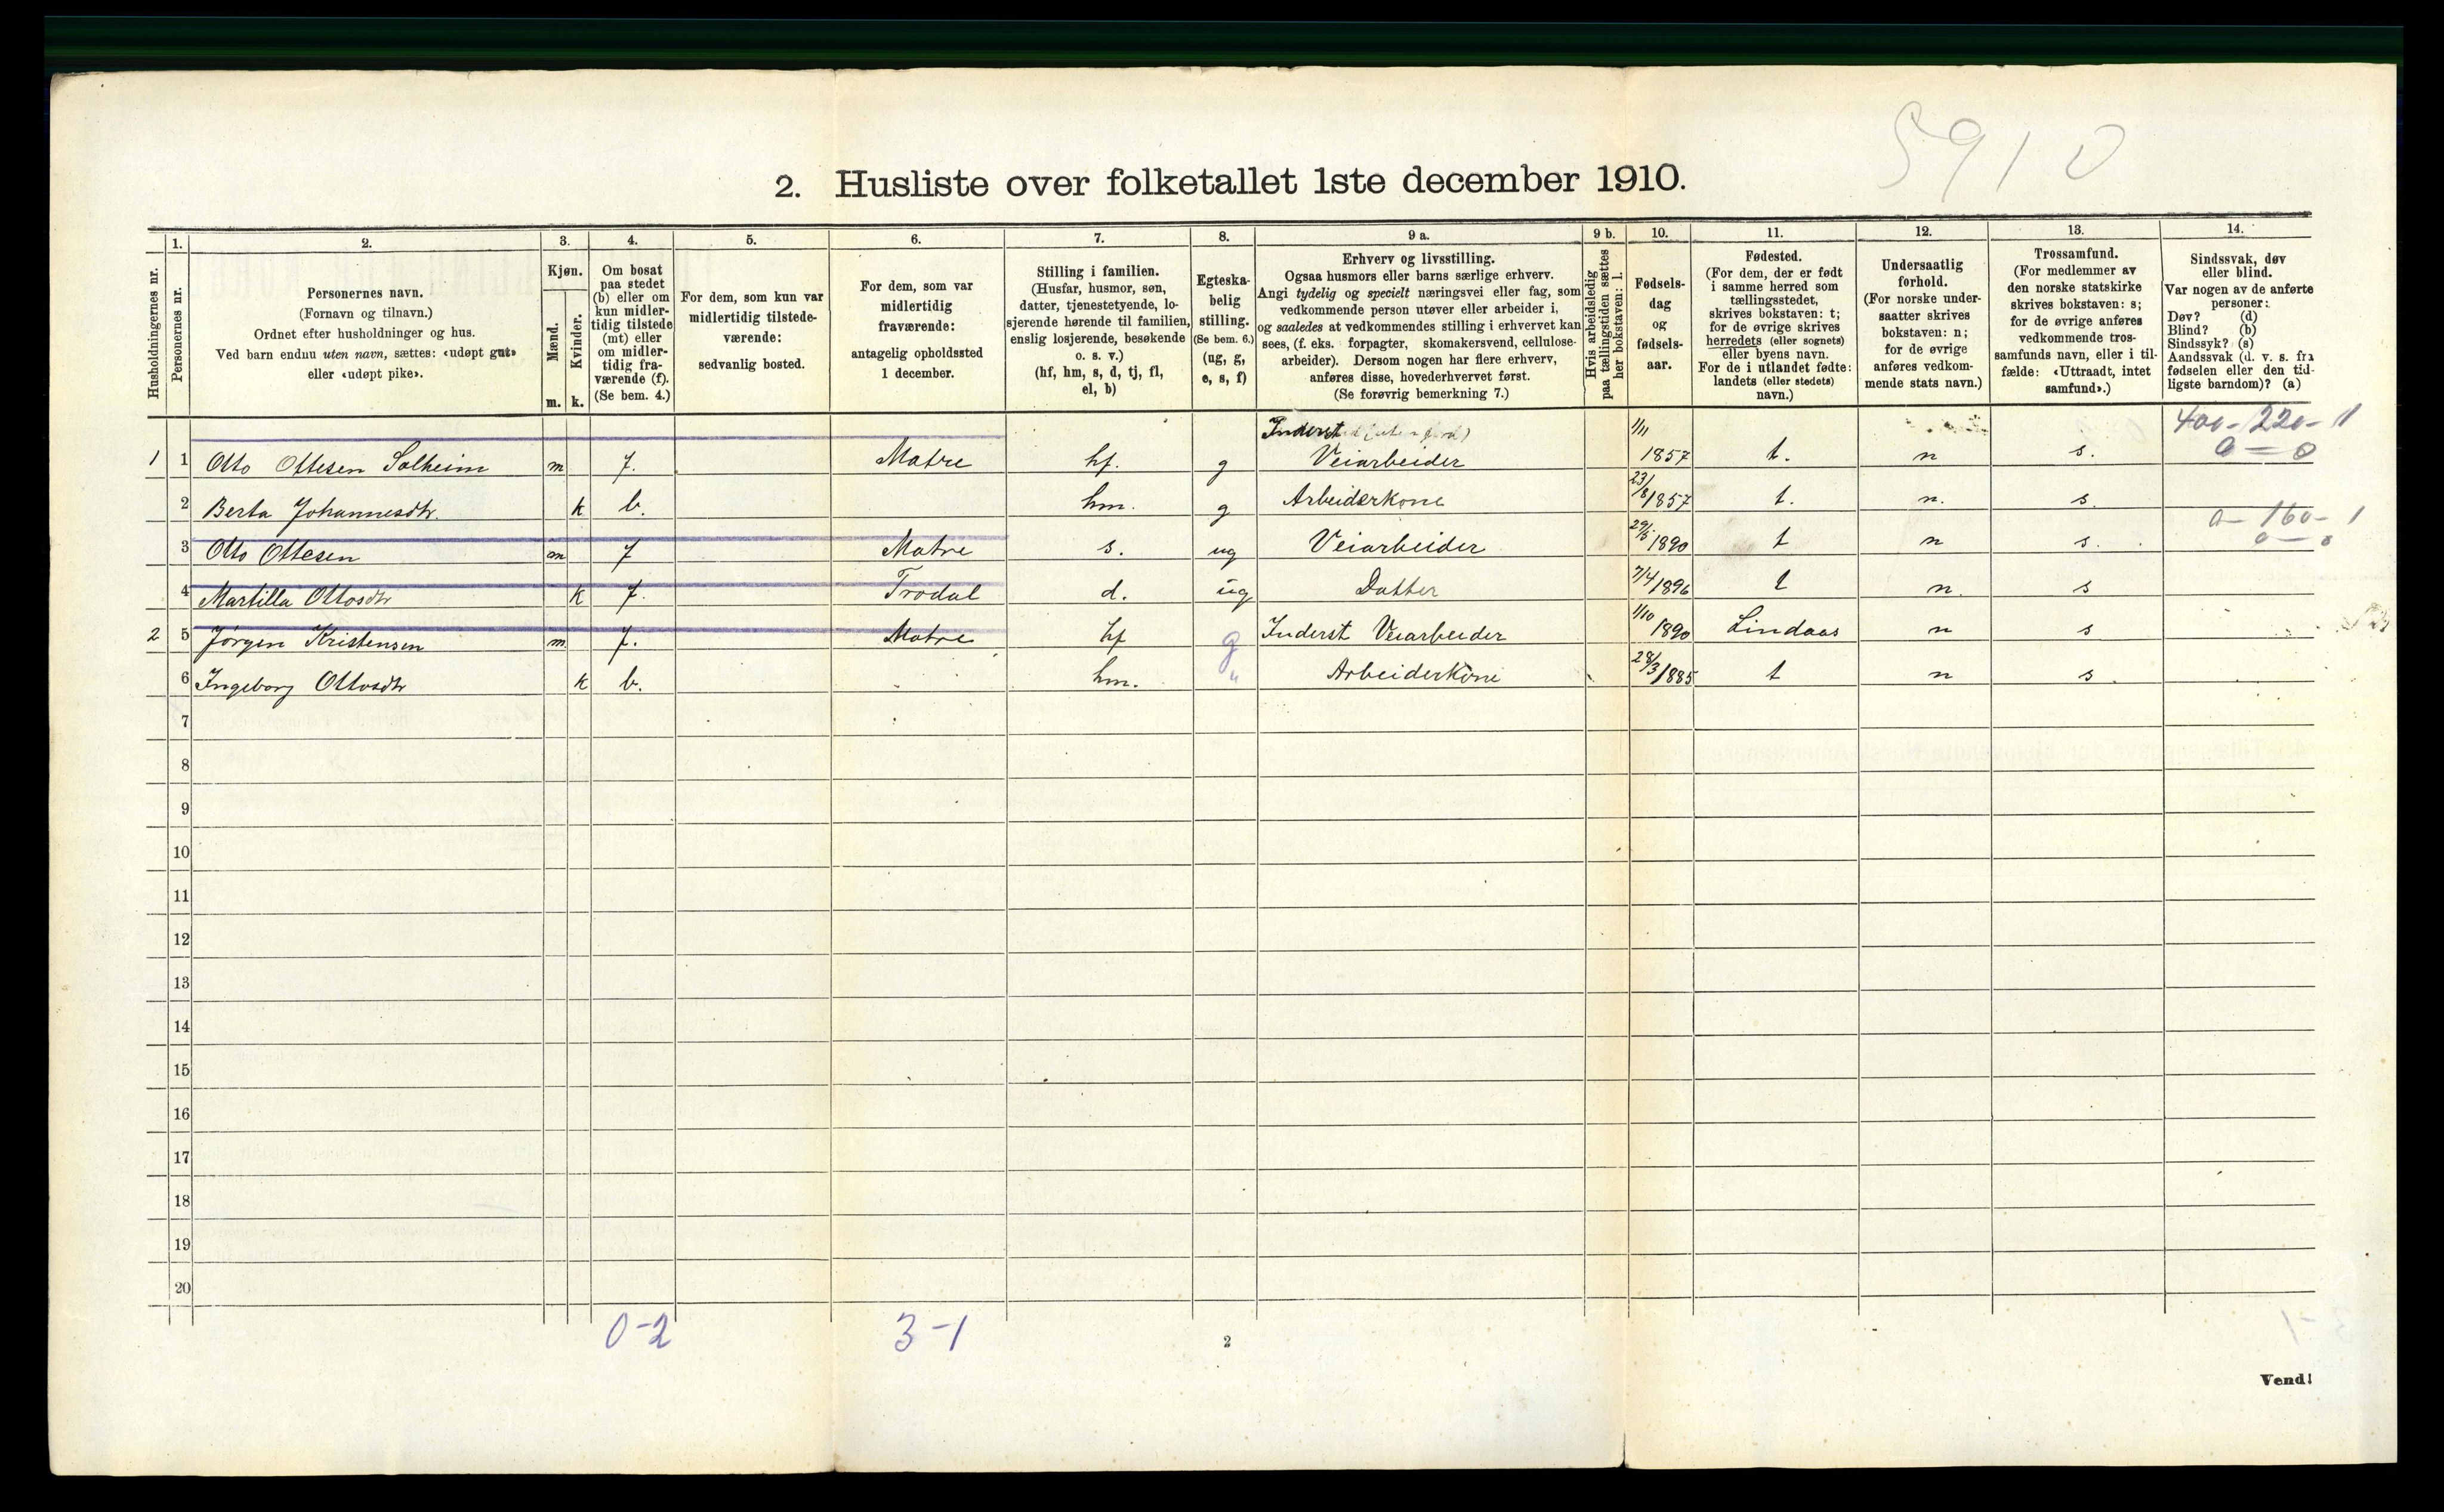 5910
2. Husliste over folketallet 1ste december 1910.
Husholdningernes nr.
1.
Personernes nr.
2.
Personernes navn.
(Fornavn og tilnavn.)
Ordnet efter husholdninger og hus.
Ved barn endnu uten navn, sættes: «udøpt gut»
eller «udøpt pike».
3.
Kjøn.
Mænd.
Kvinder.
m. k.
4.
Om bosat
paa stedet
(b) eller om
kun midler-
tidig tilstede
(mt) eller
om midler-
tidig fra-
værende (f).
(Se bem. 4.)
5.
For dem, som kun var
midlertidig tilstede-
værende:
sedvanlig bosted.
6.
For dem, som var
midlertidig
fraværende:
antagelig opholdssted
1 december.
7.
Stilling i familien.
(Husfar, husmor, søn,
datter, tjenestetyende, lo-
sjerende hørende til familien,
enslig losjerende, besøkende
o. s. v.)
(hf, hm, s, d, tj, fl,
el, b)
8.
Egteska-
belig
stilling.
(Se bem. 6.)
(ug, g,
e, s, f)
9 a.
Erhverv og livsstilling.
Ogsaa husmors eller barns særlige erhverv.
Angi tydelig og specielt næringsvei eller fag, som
vedkommende person utøver eller arbeider i,
og saaledes at vedkommendes stilling i erhvervet kan
sees, (f. eks. forpagter, skomakersvend, cellulose-
arbeider). Dersom nogen har flere erhverv,
anføres disse, hovederhvervet først.
(Se forøvrig bemerkning 7.)
9 b.
Hvis arbeidsledig
paa tællingstiden sættes
her bokstaven: l.
10.
Fødsels-
dag
og
fødsels-
aar.
11.
Fødested.
(For dem, der er født
i samme herred som
tællingsstedet,
skrives bokstaven: t;
for de øvrige skrives
herredets (eller sognets)
eller byens navn.
For de i utlandet fødte:
landets (eller stedets)
navn.)
12.
Undersaatlig
forhold.
(For norske under-
saatter skrives
bokstaven: n;
for de øvrige
anføres vedkom-
mende stats navn.)
13.
Trossamfund.
(For medlemmer av
den norske statskirke
skrives bokstaven: s;
for de øvrige anføres
vedkommende tros-
samfunds navn, eller i til-
fælde: «Uttraadt, intet
samfund».)
14.
Sindssvak, døv
eller blind.
Var nogen av de anførte
personer:
Døv? (d)
Blind? (b)
Sindssyk? (s)
Aandssvak (d. v. s. fra
fødselen eller den tid-
ligste barndom)? (a)
Inderst 1/11 400-220-1
1 1 Otto Ottesen Solheim m f. Matre hf. g Veiarbeider 1857 t. n s. 0 = 0
2 Berta Johannesdtr. k b. hm. g Arbeiderkone 23/8 1857 t. n. s.
0-160-1
3 Otto Ottesen m f Matre s. ug Veiarbeider 29/5 1890 t n s. 0-0
4 Martilla Ottosdtr k f. Trodal d. ug Datter 7/4 1896 t n. s
2 5 Jørgen Kristensen m f. Matre hf g Inderst Veiarbeider 1/10 1890 Lindaas n s
6 Ingeborg Ottosdtr k b. hm. " Arbeiderkone 28/3 1885 t n s
7
8
9
10
11
12
13
14
15
16
17
18
19
20
0-2 3-1
2
Vend!